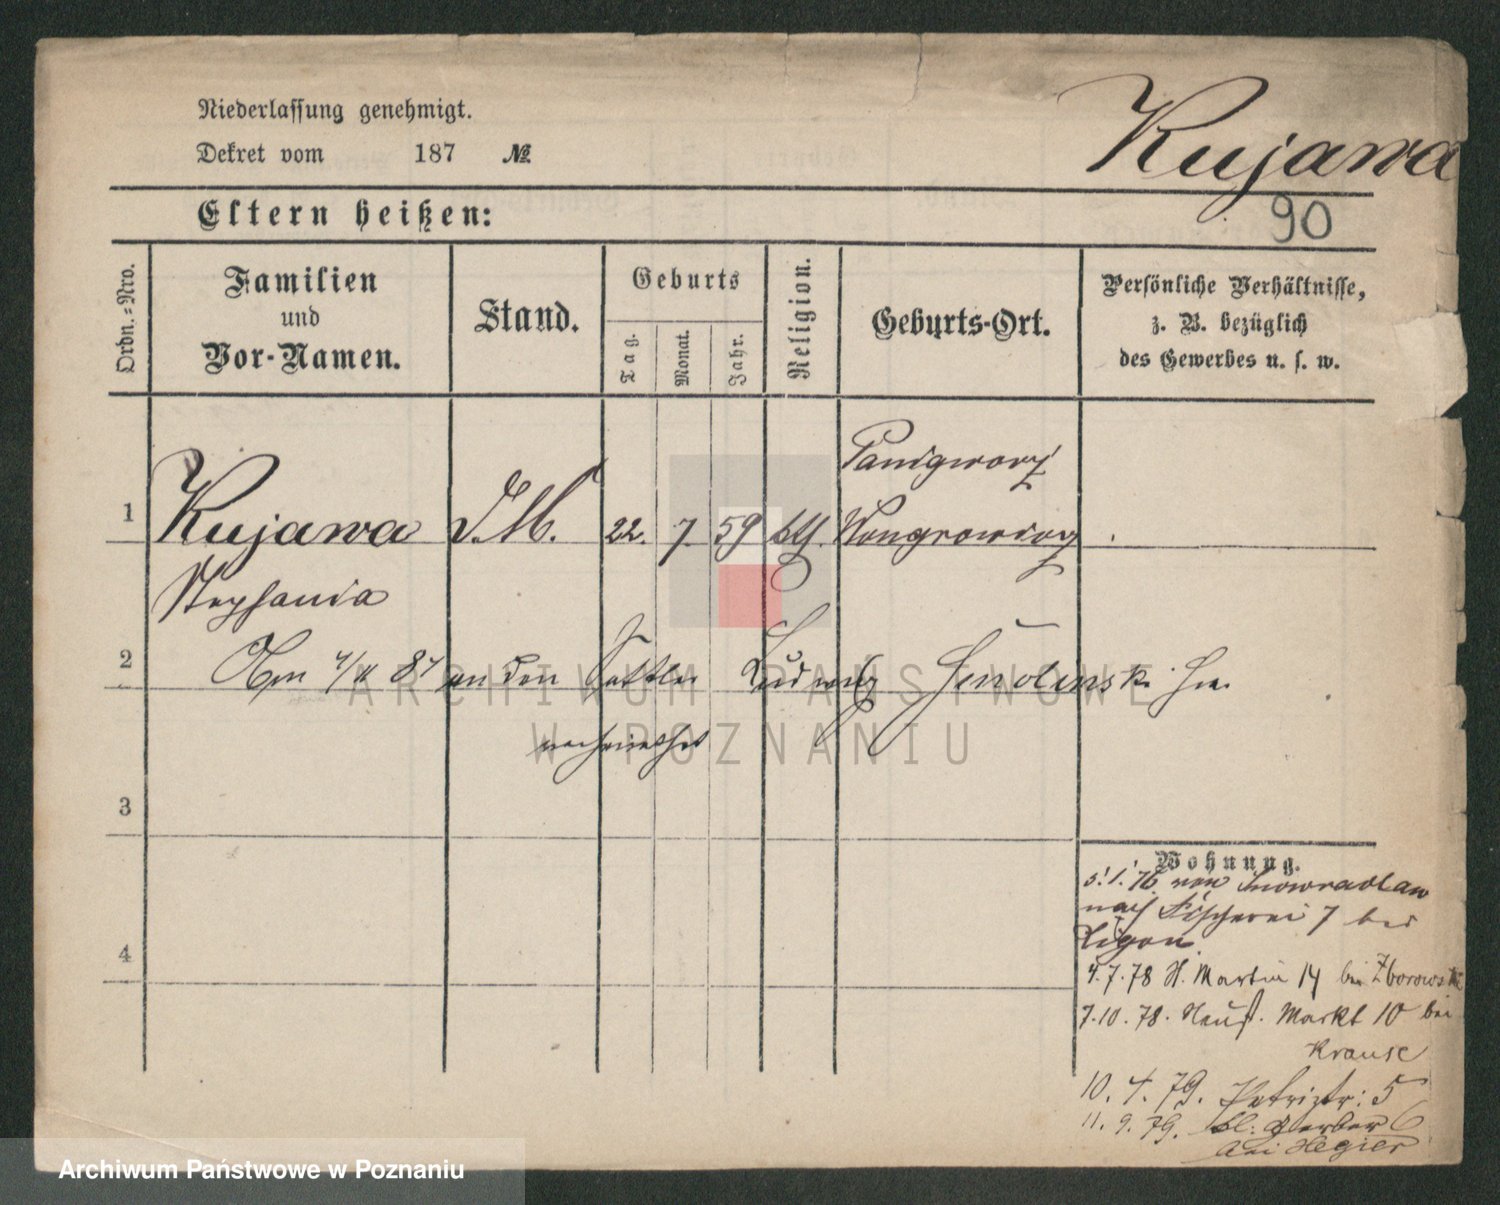 Niederlassung genehmigt.
Dekret vom 187 №
Kujawa
90
Eltern heißen:
Ordn.-Nro.
Familien
und
Vor-Namen.
Stand.
Geburts
Tag.
Monat.
Jahr.
Religion.
Geburts-Ort.
Persönliche Verhältnisse,
z. B. bezüglich
des Gewerbes u. s. w.
1
Kujawa
D.M.
22.
7.
59
Wongrowiec
Stephania
2
an den Sattler Ludwig Smolenski hier
verheirathet
3
4
Wohnung.
5.1.76 von Inowradlaw
nach Fischerei 7 bei
4.7.78 St. Martin 14 bei Zborowski
7.10.78. Neust. Markt 10 bei
Krause
10.4.79. 5
11.9.79. kl. Gerber 6
bei Hegier
ARCHIWUM PAŃSTWOWE
W POZNANIU
Archiwum Państwowe w Poznaniu